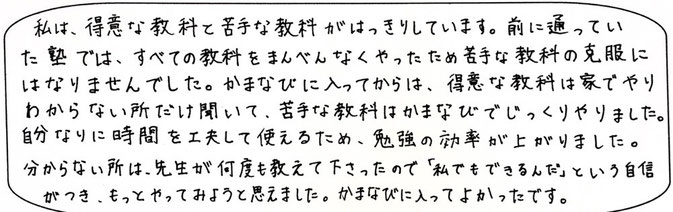 私は、得意な教科と苦手な教科がはっきりしています。前に通ってい
た塾では、すべての教科をまんべんなくやったため苦手な教科の克服に
はなりませんでした。かまなびに入ってからは、得意な教科は家でやり
わからない所だけ聞いて、苦手な教科はかまなびでじっくりやりました。
自分なりに時間を工夫して使えるため、勉強の効率が上がりました。
分からない所は、先生が何度も教えて下さったので「私でもできるんだ」という自信
がつき、もっとやってみようと思えました。かまなびに入ってよかったです。